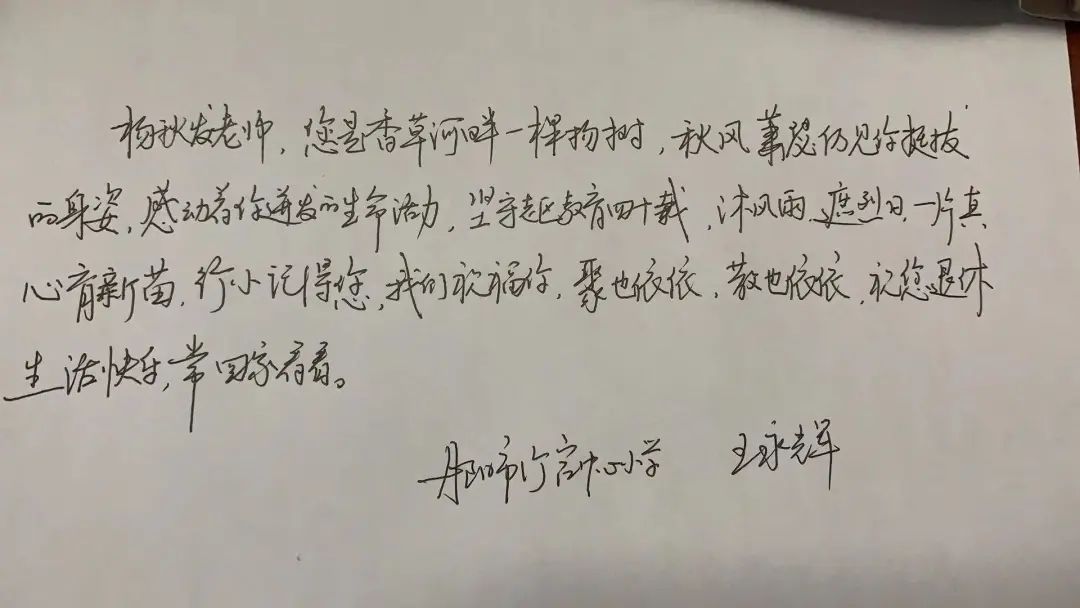 杨秋发老师,您是香草河畔一棵杨树,秋风萧瑟仍见你挺拔
的身姿,感动着你迸发的生命活力,坚守老区教育四十载,沐风雨,遮烈日,一片真
心育新苗,行小记得您,我们祝福你,聚也依依,散也依依,祝您退休
生活快乐,常回家看看。
丹阳市行宫中心小学 王永辉